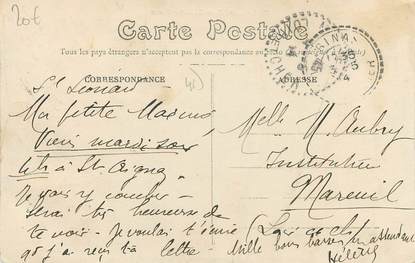 20€
Carte Postale
Tous les pays étrangers n'acceptent pas la correspondance au
CORRESPONDANCE
ADRESSE
St Léonard
Ma petite
Viens mardi soir
à St Aignan
Je vais y coucher
Serai très heureuse de
te voir - Je voulais t'écrire
qd j'ai reçu ta lettre -
41
Melle M. Aubry
Institutrice
Mareuil
Loir et Cher
Mille bons baisers en attendant
Hélène